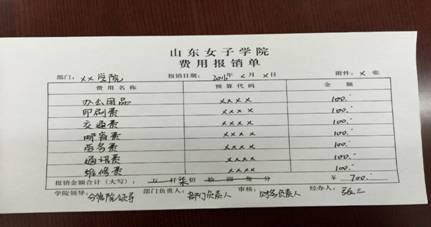 山东女子学院
费用报销单
部门：xx学院 报销日期：2016年x月x日 附件：x张
费用名称 预算代码 金额
办公用品 xxxx 100.
印刷费 xxxx 100.
交通费 xxxx 100.
邮寄费 xxxx 100.
商务费 xxxx 100.
通讯费 xxxx 100.
维修费 xxxx 100.
报销金额合计（大写）： 柒佰 ￥700.
学院领导：分管院领导 部门负责人：部门负责人 审核：财务负责人 经办人：张三